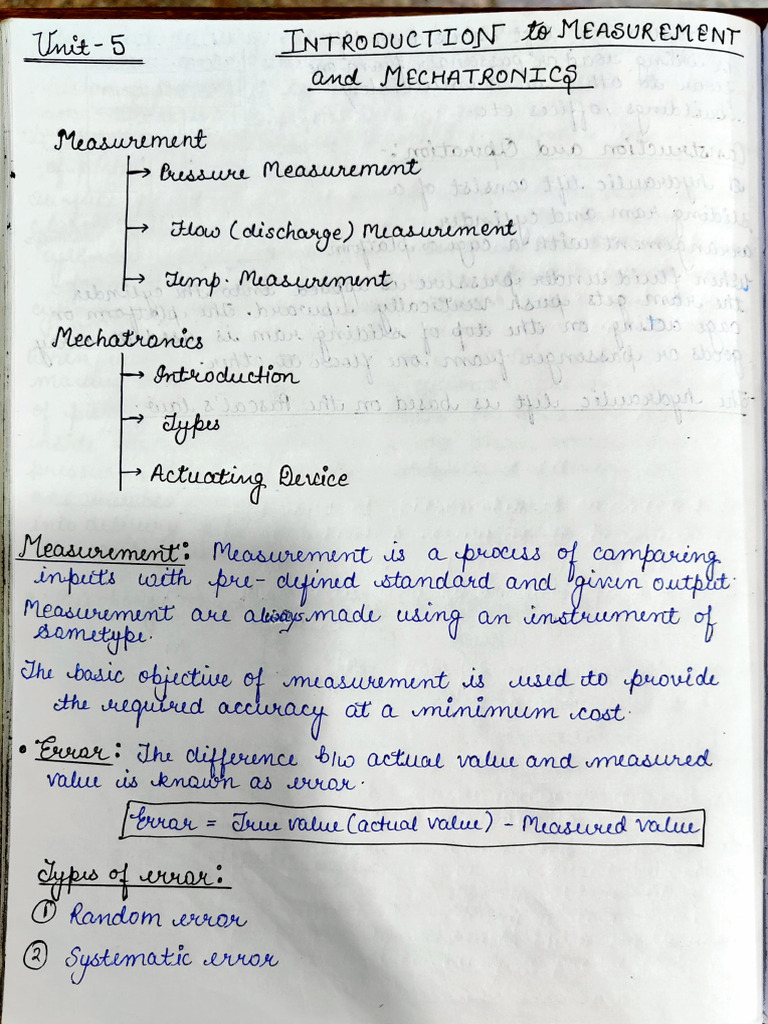 Unit - 5
INTRODUCTION to MEASUREMENT
and MECHATRONICS
Measurement
→ Pressure Measurement
→ Flow (discharge) Measurement
→ Temp. Measurement
Mechatronics
→ Introduction
→ Types
→ Actuating Device
Measurement: Measurement is a process of comparing
inputs with pre-defined standard and given output.
Measurement are always made using an instrument of
sametype.
The basic objective of measurement is used to provide
the required accuracy at a minimum cost.
• Error: The difference b/w actual value and measured
value is known as error.
Error = True value (actual value) - Measured value
Types of error:
① Random error
② Systematic error